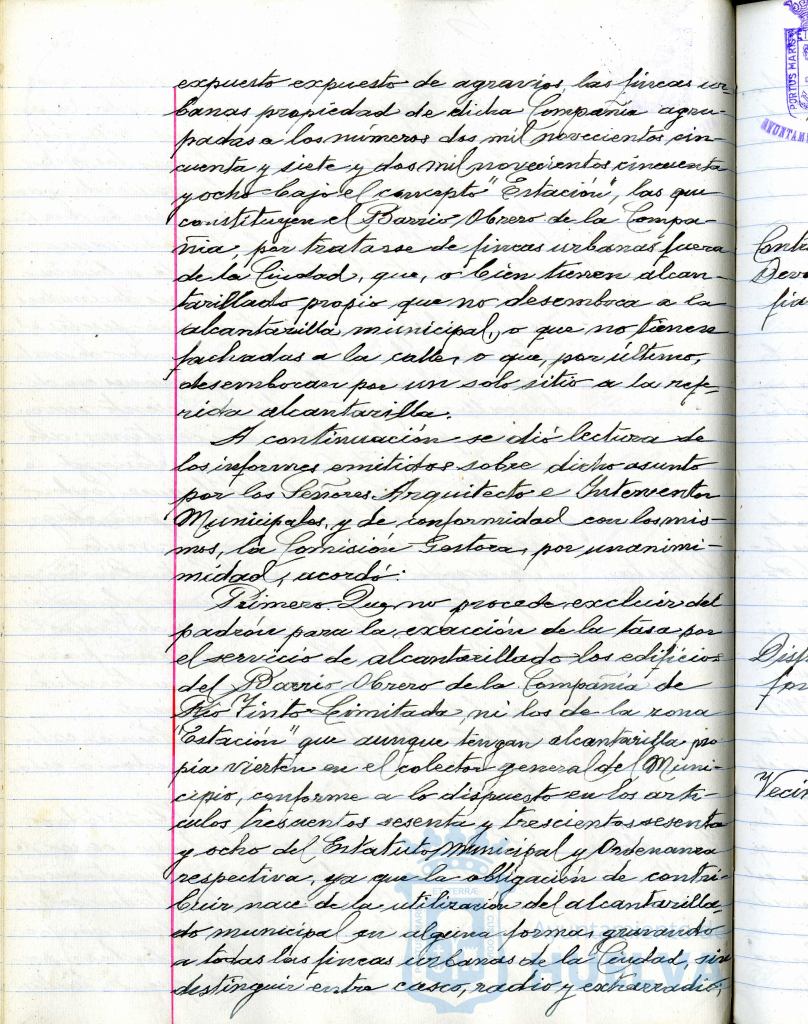 expuesto expuesto de agravios, las fincas ur-
banas propiedad de dicha Compañía agru-
padas a los números dos mil novecientos cin-
cuenta y siete y dos mil novecientos cincuenta
y ocho bajo el concepto "Estación", las que
constituyen el Barrio Obrero de la Compa-
ñia, por tratarse de fincas urbanas fuera
de la Ciudad, que, o bien tienen alcan-
tarillado propio que no desemboca a la
alcantarilla municipal, o que no tienen
fachadas a la calle, o que, por último,
desembocan por un solo sitio a la refe-
rida alcantarilla.
A continuación se dió lectura de
los informes emitidos sobre dicho asunto
por los Señores Arquitecto e Interventor
Municipales, y de conformidad con los mis-
mos, la Comisión Gestora, por unanimi-
midad, acordó:
Primero. Que no procede excluir del
padrón para la exacción de la tasa por
el servicio de alcantarillado los edificios
del Barrio Obrero de la Compañía de
Rio Tinto Limitada, ni los de la zona
"Estación" que aunque tengan alcantarilla pro-
pia vierten en el colector general del Muni-
cipio, conforme a lo dispuesto en los artí-
culos trescientos sesenta y trescientos sesenta
y ocho del Estatuto Municipal y Ordenanza
respectiva, ya que la obligación de contri-
buir nace de la utilización del alcantarilla-
do municipal en alguna forma gravando
a todas las fincas urbanas de la Ciudad, sin
distinguir entre casco, radio y extrarradio;
PORTUS MARIS
AYUNTAM
Contr
Devo
fia
Disp
fon
Vecin
Ayuntamiento
HUELVA